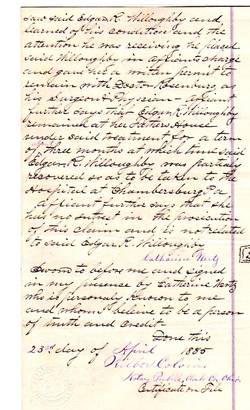 saw said Edgar R. Willoughby and
learned of his condition and the
attention he was receiving he placed
said Willoughby in affiants charge
and gave her a written permit to
remain with Doctor Rosenburg, as
his Surgeon & Physician - affiant
further says that Edgar R Willoughby
remained at her fathers House
under said treatment for a term
of three months at which time said
Edgar R. Willoughby was partially
recovered so as to be taken to the
Hospital at Chambersburg Pa
affiant further says that she
has no interest in the prosecution
of this claim and is not related
to said Edgar R. Willoughby
Catharine
Sworn to before me and signed
in my presence by Catharine
who is personally Known to me
and whom I believe to be a person
of truth and credit.
Done this
23rd day of April 1885
Notary Public, Co. Ohio
Certificate on File